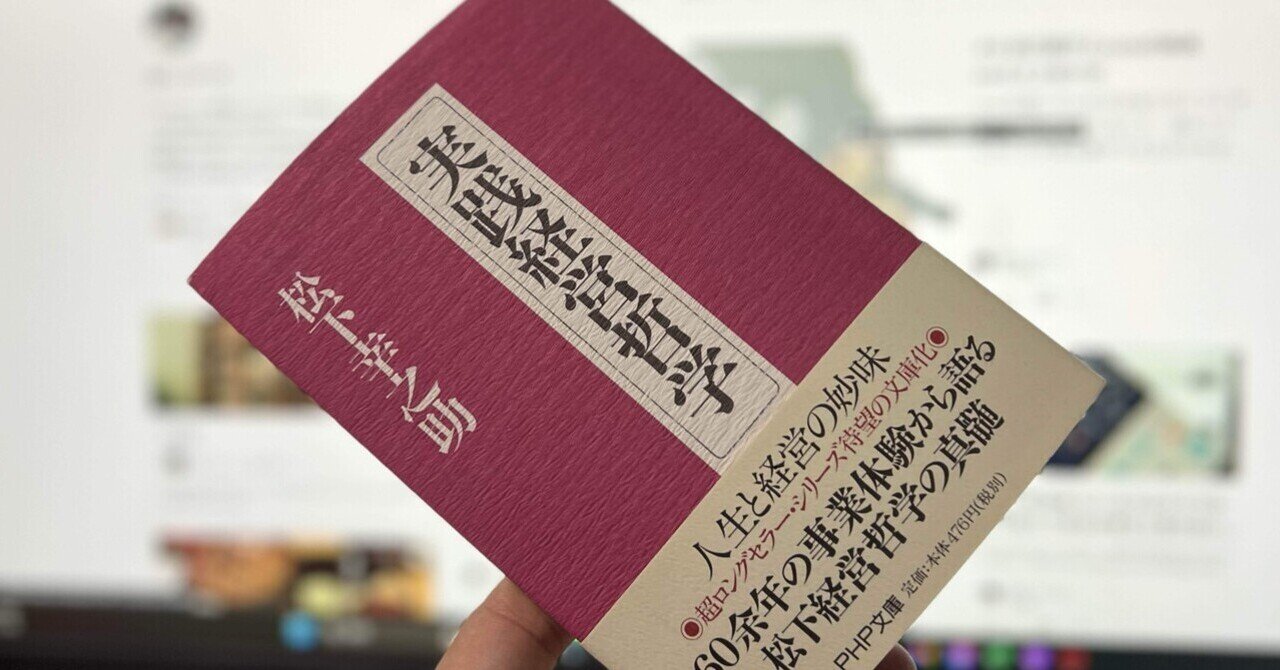 実践経営哲学
松下幸之助
人生と経営の妙味
●超ロングセラー・シリーズ待望の文庫化●
60余年の事業体験から語る
松下経営哲学の真髄
PHP文庫 定価:本体476円(税別)